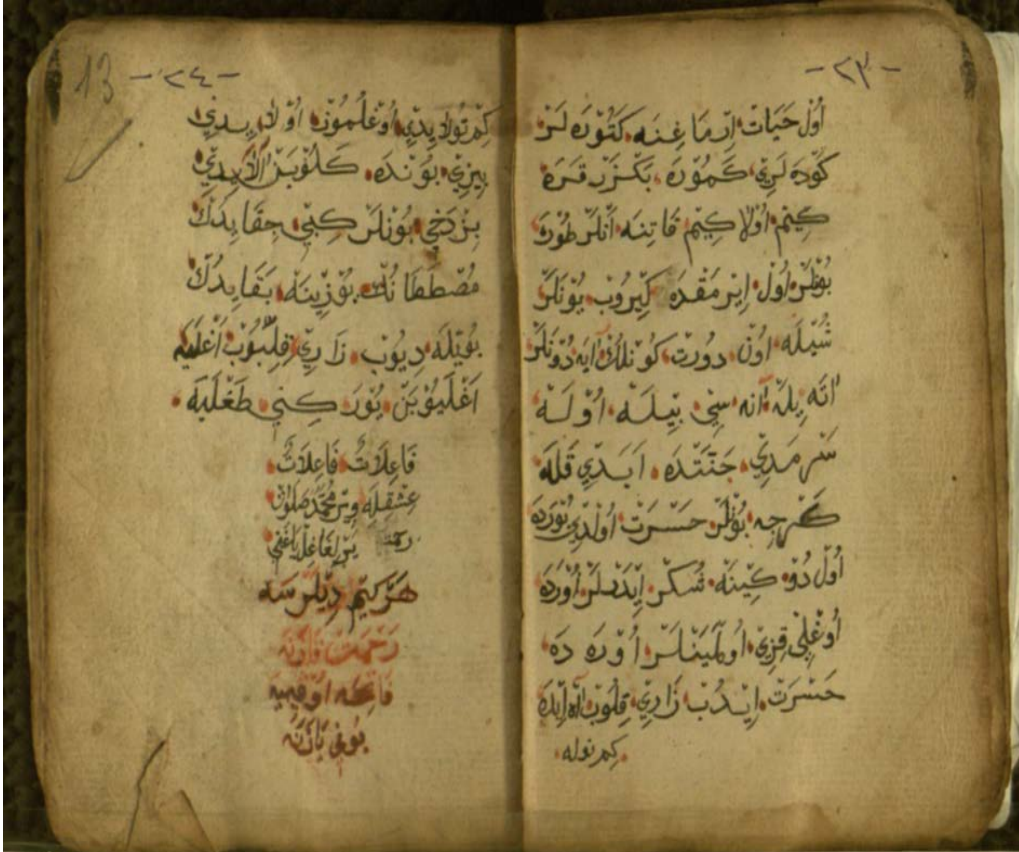 -٢٣-
اُول حَيَات اِرْمَاغِنَه كَتُوْرَه لَرْ
كَوْدَه لَرِيْ كَمُوْرَه بَكْزَرْ قَرَه
كِيْم اُوْلا كِيْم قَاتِنَه اَنْلَرْ طُورَه
بُوْنْلَرْ اُول اِيْرْمَقْدَه كِيْرُوبْ يُوْنَلَرْ
شُيْلَه اُوْنْ دُورْت كُوْنْلُكْ اَيَه دُوْنَلَرْ
اَتَه يِلَه اَنَه سِيْ بِيْلَه اُوْلَه
سَرْمَدِيْ جَنَّتْدَه اَبَدِيْ قَلَه
كَرْچِه بُوْنْلَرْ حَسْرَت اُوْلْدِيْ بُوْرَدَه
اُول دُوْ كِيْنَه شُكُرْ اِيْدَرْلَرْ اُوْرَدَه
اُوْغْلِيْ قِزِيْ اُوْلْمَيَنْلَرْ اُوْرَه دَه
حَسْرَت اِيْدُبْ زَارِيْ قِلُوبْ اٰه اِيْدَه
كِم نُوله
-٢٤-
13
كِمْ نُولَايِدِيْ اُوْغْلُمُوْزْ اُوْلَايِدِيْ
بِيْزِيْ بُوْنْدَه كَلُوْبَنْ اٰلَايْدِيْ
بِزْ دَخِيْ بُوْنْلَرْ كِبِيْ چِقَايِدُكْ
مُصْطَفَانُكْ يُوْزِيْنَه بَقَايِدُكْ
بُوْيْلَه دِيُوبْ زَارِيْ قِلُبُوْبْ اَغْلَيَه
اَغْلَيُوْبَنْ يُوْرَكِنِيْ طَغْلَيَه
فَاعِلَاتٌ فَاعِلَاتٌ
عِشْقِلَه وِيْرْ مُحَمَّدَه صَلَوٰتْ
هَرْ كِيْم دِيْلَرْسَه
رَحْمَت
فَاتِحَه اُوْقِيَه
بُونِيْ يَازَنَه